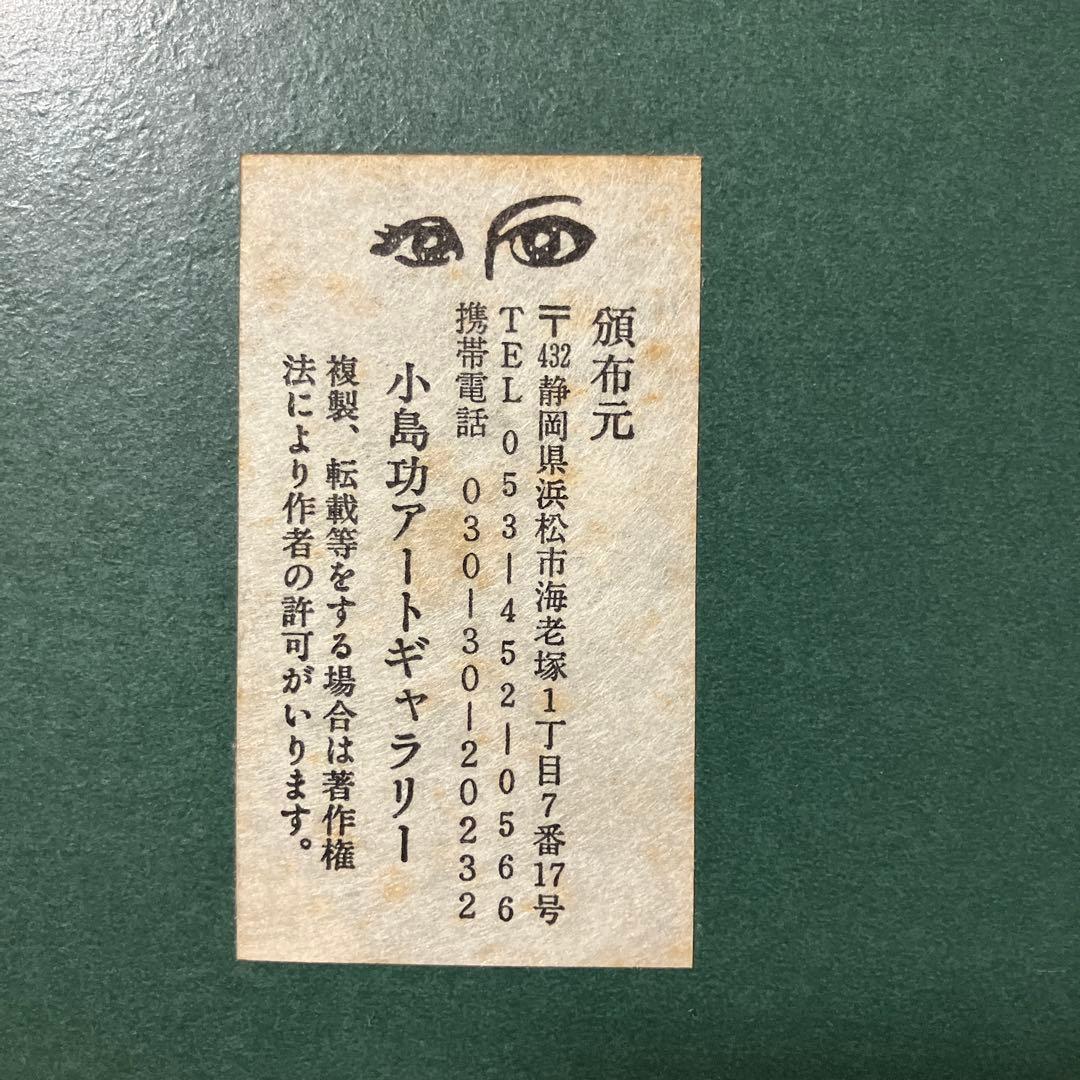 頒布元
〒432静岡県浜松市海老塚1丁目7番17号
TEL 053ー452ー0566
携帯電話 030ー30ー20232
小島功アートギャラリー
複製、転載等をする場合は著作権
法により作者の許可がいります。